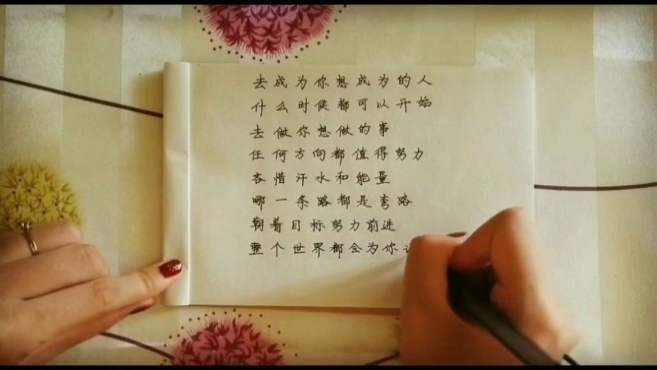 去成为你想成为的人
什么时候都可以开始
去做你想做的事
任何方向都值得努力
吝惜汗水和能量
哪一条路都是弯路
朝着目标努力前进
整个世界都会为你